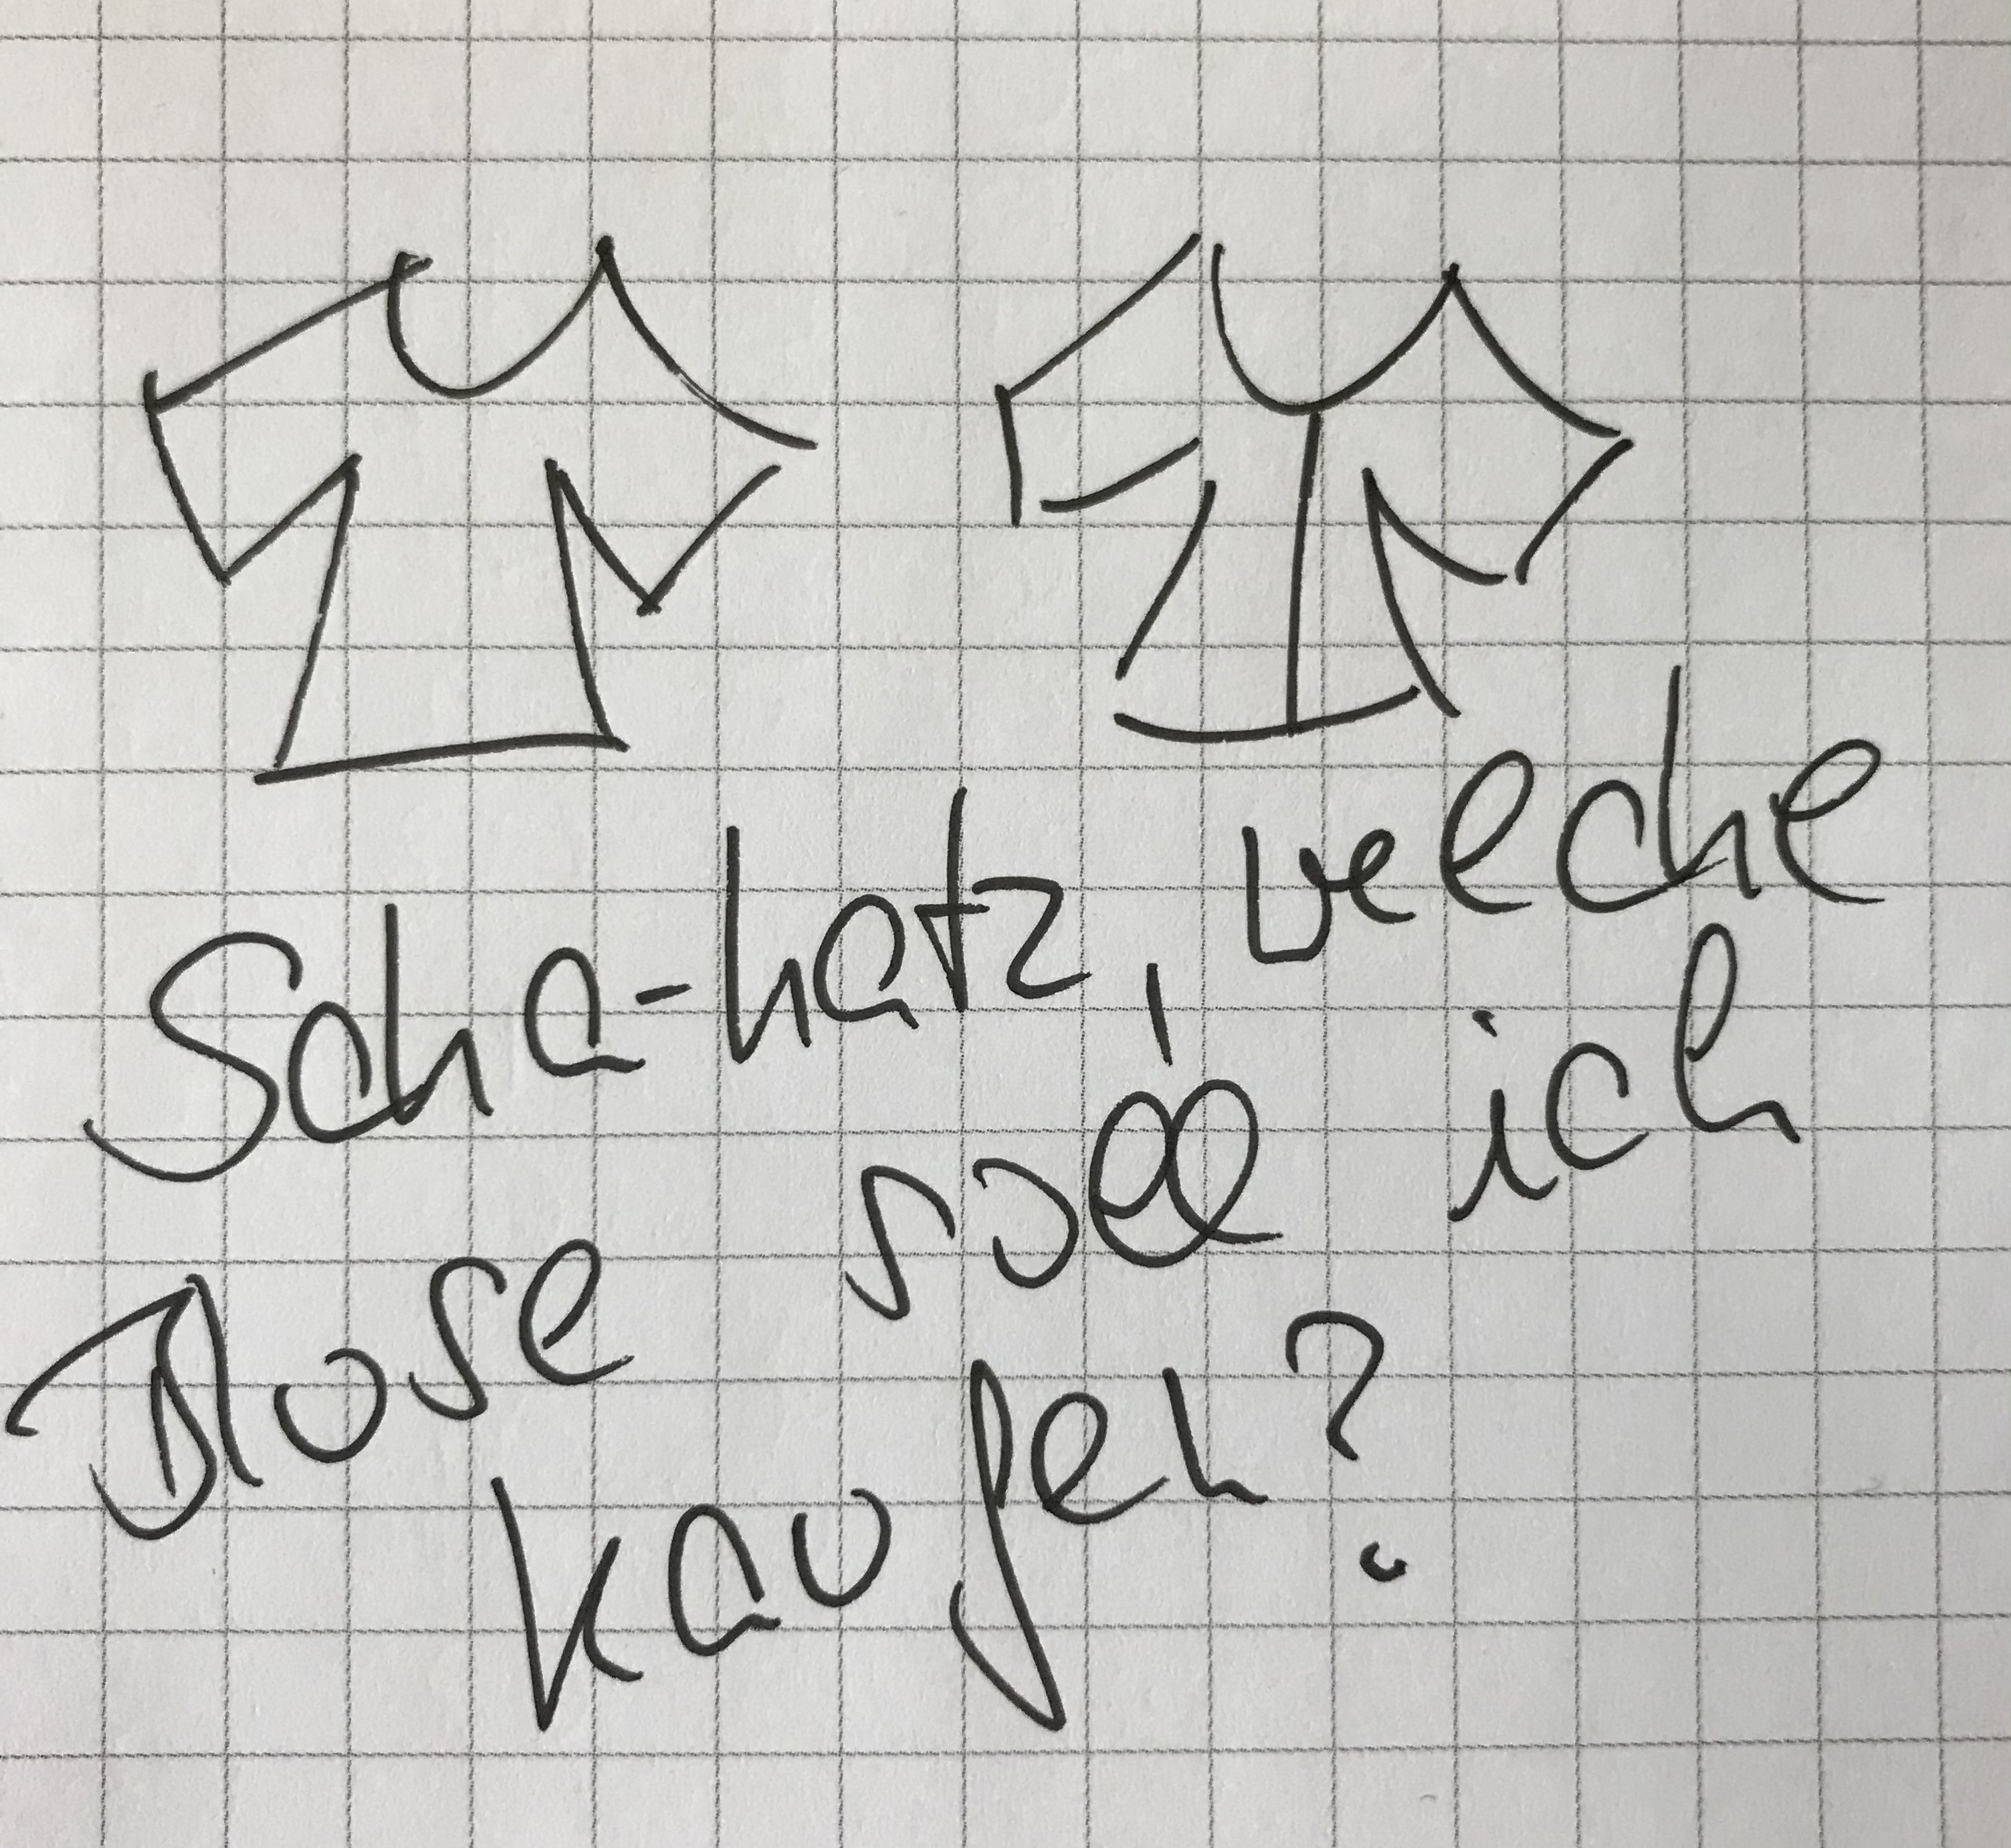 Scha-hatz, welche
Bluse soll ich
kaufen?